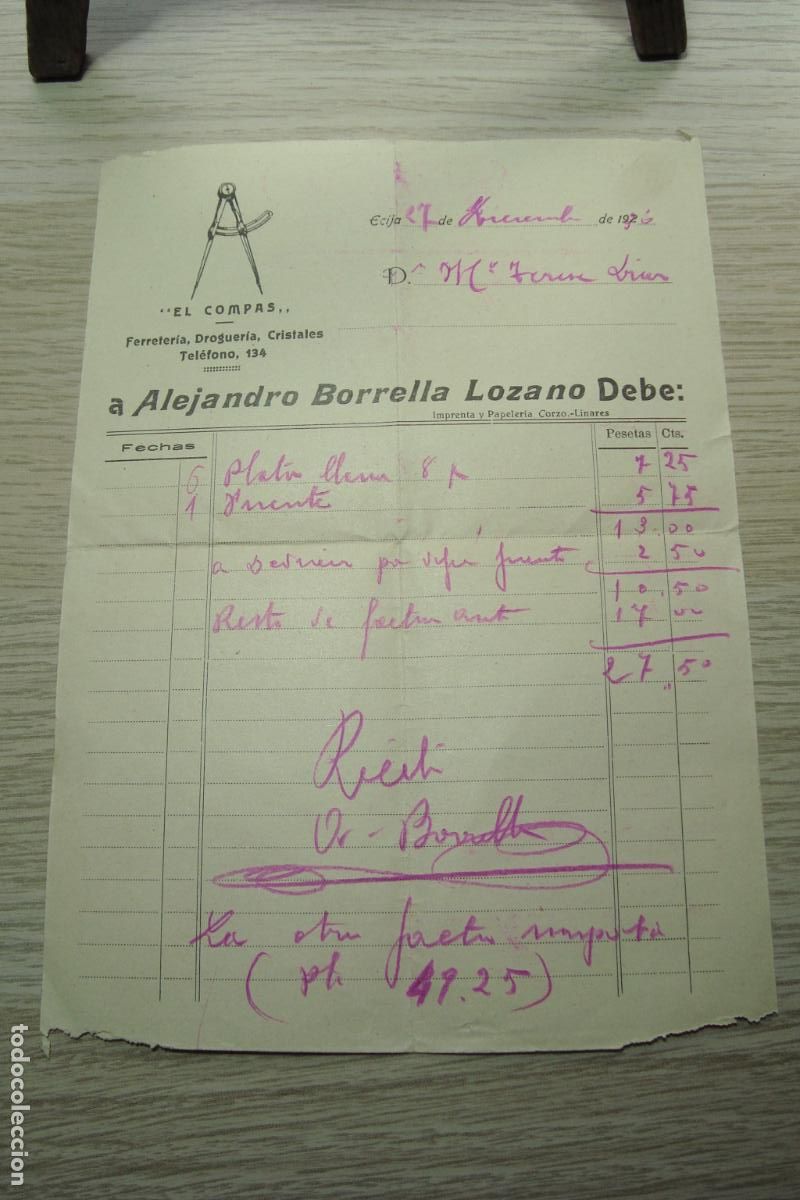 Ecija 27 de de 192
D.ª Mª Teresa
"EL COMPAS,,
Ferretería, Droguería, Cristales
Teléfono, 134
a Alejandro Borrella Lozano Debe:
Imprenta y Papelería Corzo.-Linares
Fechas Pesetas Cts.
6 Plato llano 8 p 7 25
1 Fuente 5 75
13.00
a deducir por fuente 2 50
10.50
Resto de factura ant 17 00
27,50
Recibí
Borrella
La otra factura importa
(Pts 49.25)
todocoleccion